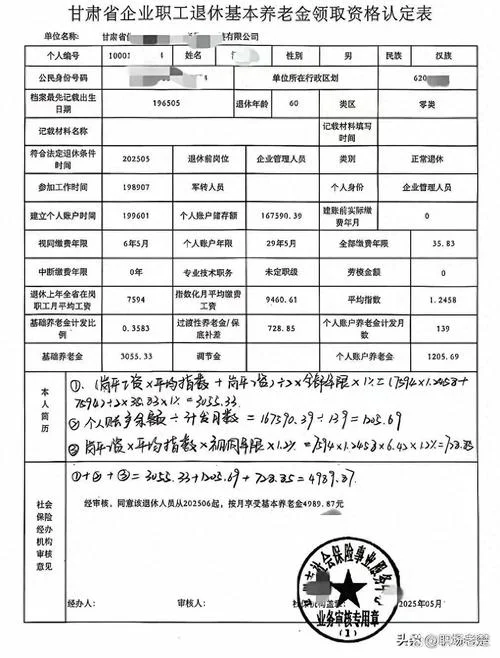 甘肃省企业职工退休基本养老金领取资格认定表
单位名称: 甘肃省 有限公司
个人编号 10001 4 姓名 性别 男 民族 汉族
公民身份号码 4 单位所在行政区划 620
档案最先记载出生日期 196505 退休年龄 60 类区 零类
记载材料名称 记载材料填写时间
符合法定退休条件时间 202505 退休前岗位 企业管理人员 类别 正常退休
参加工作时间 198907 军转人员 个人身份 企业管理人员
建立个人账户时间 199601 个人账户储存额 167590.39 建账前实际缴费年月 0
视同缴费年限 6年5月 个人账户年限 29年5月 全部缴费年限 35.83
中断缴费年限 0年 专业技术职务 未定职级 劳模金额 0
退休上年全省在岗职工月平均工资 7594 指数化月平均缴费工资 9460.61 平均指数 1.2458
基础养老金计发比例 0.3583 过渡性养老金/保底补差 728.85 个人账户养老金计发月数 139
基础养老金 3055.33 调节金 个人账户养老金 1205.69
本人简历
①、(岗平工资×平均指数+岗平工资)÷2×全部年限×1%=(7594×1.2458+
7594)÷2×35.83×1%=3055.33
②个人账户余额÷计发月数=167590.39÷139=1205.69
③岗平工资×平均指数×视同年限×1.2%=7594×1.2458×6.42×1.2%=728.85
社会保险经办机构审核意见
①+②+③=3055.33+1205.69+728.85=4989.87
经审核,同意该退休人员从202506起,按月享受基本养老金4989.87元
经办人: 审核人: 社保机构盖章: 2025年05月
社会保险事业服务中
业务审核专用章
(1)
头条 @职场老楚